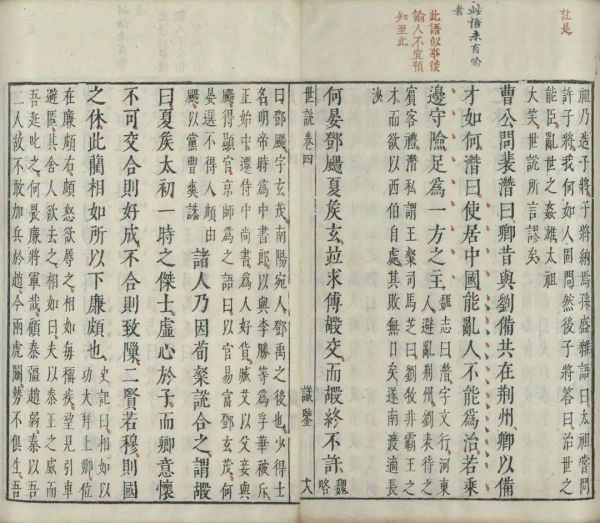 註是
此語未有喻
者
此語似事後
論人不宜預
知至此
祖乃造子將子將納焉孫盛雜語曰太祖嘗問
許子將我何如人固問然後子將答曰治世之
能臣亂世之姦雄太祖
大笑世說所言謬矣
曹公問裴潛曰卿昔與劉備共在荊州卿以備
才如何潛曰使居中國能亂人不能為治若乘
邊守險足為一方之主
魏志曰潛字文行河東
人避亂荊州劉表待之
賓客禮潛私謂王粲司馬芝曰劉牧非霸王之
才而欲以西伯自處其敗無日矣遂南渡適長
沙
何晏鄧颺夏侯玄並求傅嘏交而嘏終不許
魏
略
世說卷四 識鑒 十八
曰鄧颺字玄茂南陽宛人鄧禹之後也少得士
名明帝時為中書郎以與李勝等為浮華被斥
正始中遷侍中尚書為人好貨臧艾以父妾與
颺得顯官京師為之語曰以官易富鄧玄茂何
晏選不得人頗由
颺以黨曹爽誅
諸人乃因荀粲說合之謂嘏
曰夏侯太初一時之傑士虛心於子而卿意懷
不可交合則好成不合則致隟二賢若穆則國
之休此藺相如所以下廉頗也
史記曰相如以
功大拜上卿位
在廉頗右頗怒欲辱之相如每稱疾望見引車
避匿其舍人欲去之相如曰夫以秦王之威而
吾廷叱之何畏廉將軍哉顧秦彊趙弱秦以吾
二人故不敢加兵於趙今兩虎鬬勢不俱生吾